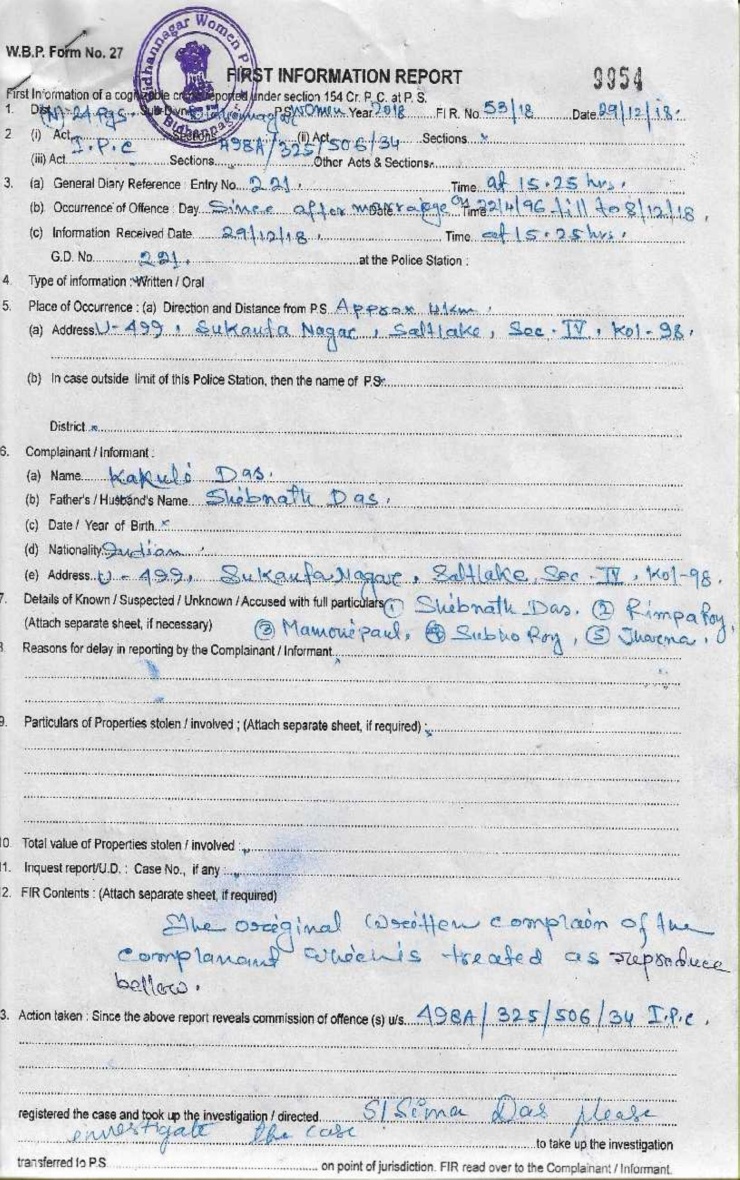 Bidhannagar Women P
W.B.P. Form No. 27
FIRST INFORMATION REPORT 9954
First Information of a cognizable crime reported under section 154 Cr. P. C. at P. S.
1. Dist. (N) 24 Pgs. Sub-Divn. Bidhannagar P.S. Women Year 2018 FIR. No. 53/18 Date 29/12/18.
2 (i) Act I.P.C Sections 498A/325/506/34 (ii) Act Sections x
(iii) Act Sections Other Acts & Sections
3. (a) General Diary Reference : Entry No. 221. Time at 15.25 hrs.
(b) Occurrence of Offence : Day Since after marrage on Time 22/4/96 till to 8/12/18,
(c) Information Received Date 29/12/18, Time at 15.25 hrs.
G.D. No. 221. at the Police Station :
4. Type of information : Written / Oral
5. Place of Occurrence : (a) Direction and Distance from P.S. Approx 4 km.
(a) Address U-499, Sukanta Nagar, Saltlake, Sec. IV, Kol-98.
(b) In case outside limit of this Police Station, then the name of P.S.
District
6. Complainant / Informant :
(a) Name Kakuli Das.
(b) Father's / Husband's Name Shibnath Das.
(c) Date / Year of Birth x
(d) Nationality Indian
(e) Address U-499, Sukanta Nagar, Saltlake, Sec. IV, Kol-98.
7. Details of Known / Suspected / Unknown / Accused with full particulars ① Shibnath Das. ② Rimpa Roy,
(Attach separate sheet, if necessary) ③ Mamoni paul, ④ Subho Roy, ⑤ Jharna,
8. Reasons for delay in reporting by the Complainant / Informant
9. Particulars of Properties stolen / involved ; (Attach separate sheet, if required) :
10. Total value of Properties stolen / involved :
11. Inquest report/U.D. : Case No., if any :
12. FIR Contents : (Attach separate sheet, if required)
The original written complain of the
complanant which is treated as reproduce
bellow.
13. Action taken : Since the above report reveals commission of offence (s) u/s. 498A/325/506/34 I.P.C.
registered the case and took up the investigation / directed. S/Sima Das please
investigate the case to take up the investigation
transferred to P.S. on point of jurisdiction. FIR read over to the Complainant / Informant.